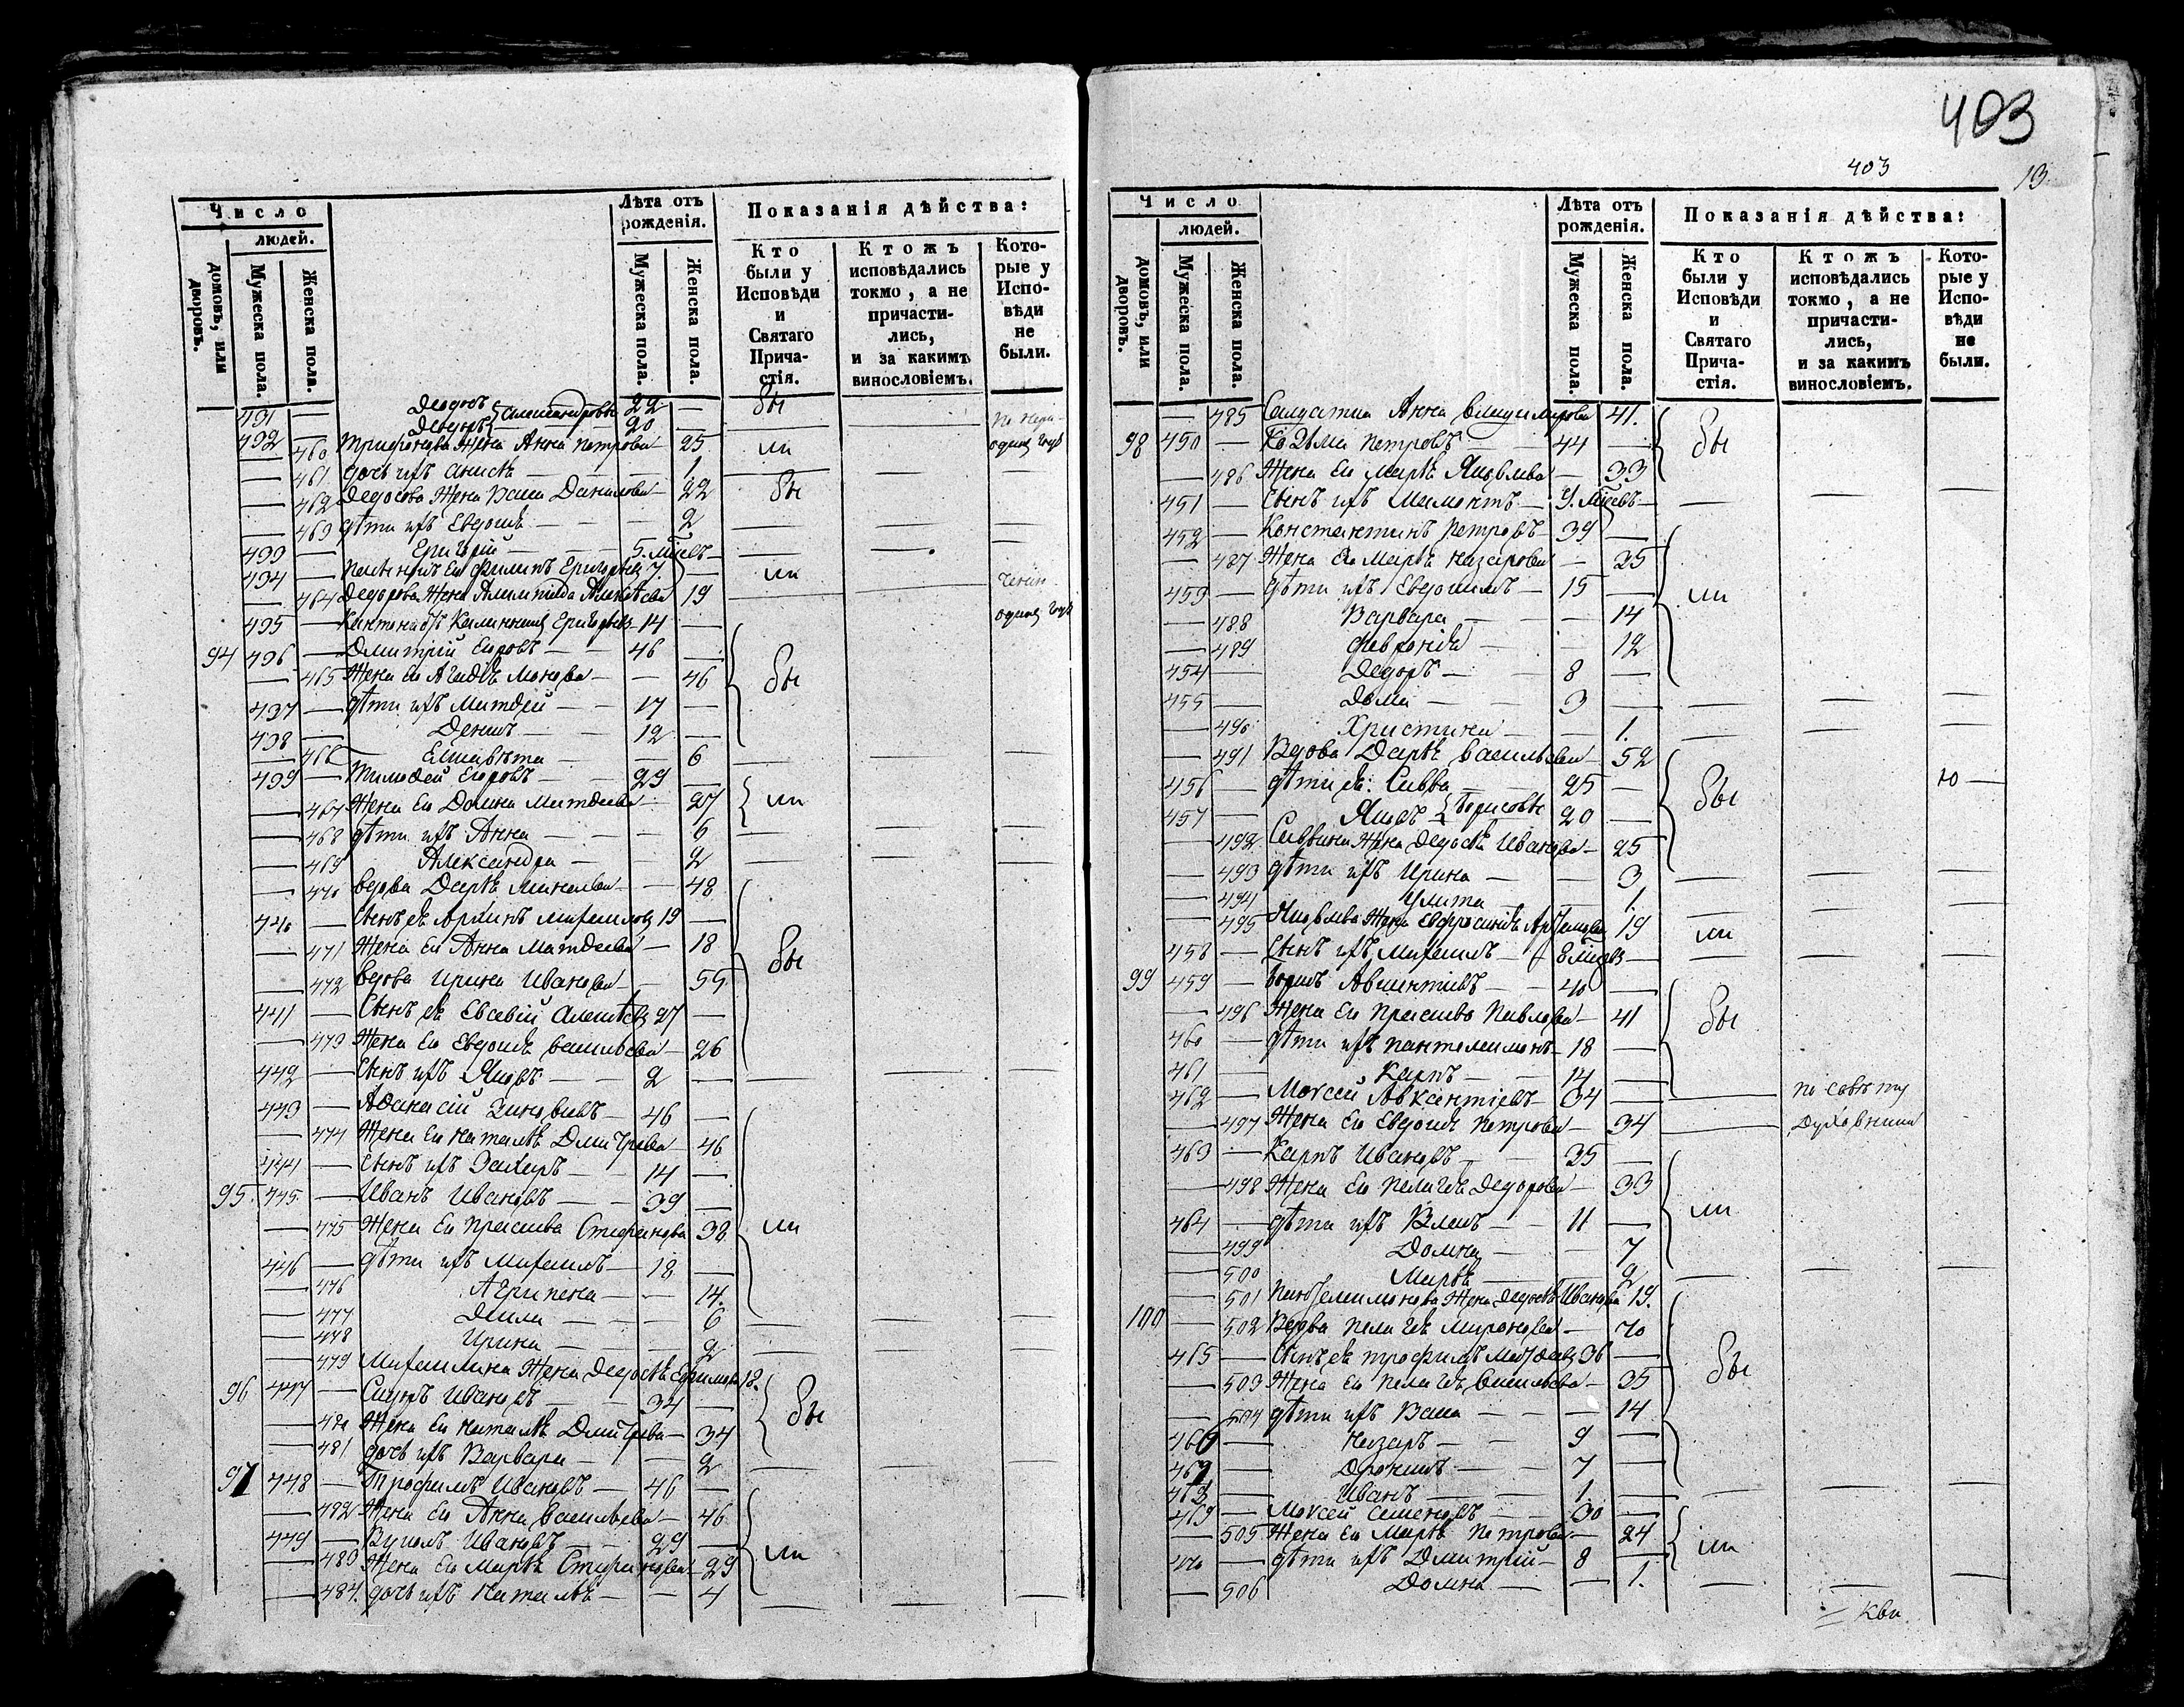 Число
людей.
домовъ, или дворовъ.
Мужеска пола.
Женска пола.
Лѣта отъ рожденія.
Мужеска пола.
Женска пола.
Показанія дѣйства:
Кто были у Исповѣди и Святаго Прича-стія.
Ктожъ исповѣдались токмо, а не причасти-лись, и за какимъ винословіемъ.
Кото-рые у Испо-вѣди не были.
491 — Ѳедосъ 22 — бы
492 — Ѳедоръ Александровы 20 —
— 460 Трифонова жена Анна Петрова — 25 ли
— 461 дочь ихъ — 1
— 462 Ѳедосова жена Васса Данилова — 22 бы
— 463 дѣти ихъ Евдокія — 2
499 — Григорій — 5. мѣсѣ
494 — Филипъ Григорьев 7 ли
— 464 Ѳедорова жена Алимпіада 19
495 — Григорьев 14 —
94 496 — Дмитрій Егоровъ — 46 —
— 465 Жена его Агафія — 46 бы
497 — дѣти ихъ Матѳей — 17 —
498 — Денисъ — 12 —
— 466 Елисавета — 6
499 — Тимоѳей Егоровъ — 29 —
— 467 Жена его Домна Матѳеева — 27 ли
— 468 дѣти ихъ Анна — 6
— 469 Александра — 2
— 470 вдова Дарья — 48
440 — Сынъ ея Архипъ 19 —
— 471 Жена его Анна Матѳеева — 18
— 472 вдова Ирина Иванова — 55 бы
441 — Сынъ ея Евсевій 27 —
— 473 Жена его Евдокія Васильева — 26
442 — Сынъ ихъ Яковъ — 2 —
443 — Аѳанасій Зиновьевъ — 46 —
— 474 Жена его Наталья Дмитрева — 46
444 — Сынъ ихъ Захаръ — 14 —
95. 445. — Иванъ Ивановъ — 39 —
— 475 Жена его Прасковья Стефанова 38 ли
446 — дѣти ихъ Михаилъ — 18 —
— 476 Агрипена — 14.
— 477 — 6
— 478 Ирина — 2
— 479 Михаилина жена Ѳедосья Ефимова 18.
96 447 — Сидоръ Ивановъ — 34 —
— 480 Жена его Наталья Дмитрева — 34 бы
— 481 дочь ихъ Варвара — 2
97 448 — Трофимъ Ивановъ — 46 —
— 482 Жена его Анна Васильева — 46
449 — Вуколъ Ивановъ — 29 —
— 483 Жена его Марья Стефанова — 29 ли
— 484. дочь ихъ Наталья — 4
403
403
13.
Число
людей.
домовъ, или дворовъ.
Мужеска пола.
Женска пола.
Лѣта отъ рожденія.
Мужеска пола.
Женска пола.
Показанія дѣйства:
Кто были у Исповѣди и Святаго Прича-стія.
Ктожъ исповѣдались токмо, а не причасти-лись, и за какимъ винословіемъ.
Кото-рые у Испо-вѣди не были.
— 485 Солдатка Анна Владимирова 41.
98 450 — Козьма Петровъ 44 — бы
— 486 Жена его Марья Яковлева — 33
451 — Сынъ ихъ 9. мѣсѣ
452 — Константинъ Петровъ — 39 —
— 487 Жена его Марья Назарова — 35
453 — дѣти ихъ Евдокимъ — 15 — ли
— 488 Варвара — 14
— 489 Февронія — 12
454 — Ѳедоръ — 8 —
455 — Ѳома — 3 —
— 490 Христина — 1.
— 491 Вдова Дарья Васильева — 52
456 — дѣти ея: Савва 25 — бы ю —
457 — Яковъ Борисовы 20 —
— 492 Саввина жена Ѳедосья Иванова — 25
— 493 дѣти ихъ Ирина — 3
— 494 Улита — 1.
— 495 Яковлева жена Евфросинія Артемова 19 ли
458 — Сынъ ихъ Михаилъ — 8 мѣсѣ —
99 459 — Борисъ Авксентіевъ — 40 —
— 496 Жена его Прасковья Павлова — 41 бы
460 — дѣти ихъ Пантелеимонъ — 18 —
461 — Карпъ — 14 —
462 — Моисей Авксентіевъ — 34 — по совѣту
— 497 Жена его Евдокія Петрова — 34 Духовника
463 — Карпъ Ивановъ — 35 —
— 498 Жена его Пелагія Ѳедорова — 33
464 — дѣти ихъ Власъ — 11 — ли
— 499 Домна — 7
— 500 Марья — 2
— 501 Пантелеимонова жена Ѳедосья Иванова 19.
100 — 502 Вдова Пелагія Миронова — 70
465 — Сынъ ея Трофимъ Матѳеев 36 —
— 503 Жена его Пелагія Васильева — 35 бы
— 504 дѣти ихъ Васса — 14
466 — Назаръ — 9 —
467 — 7 —
468 — Иванъ — 1. —
469 — Моисей Семеновъ — 30 —
— 505 Жена его Марья Петрова — 24
470 — дѣти ихъ Дмитрій — 8 — ли
— 506 Домна — 1.